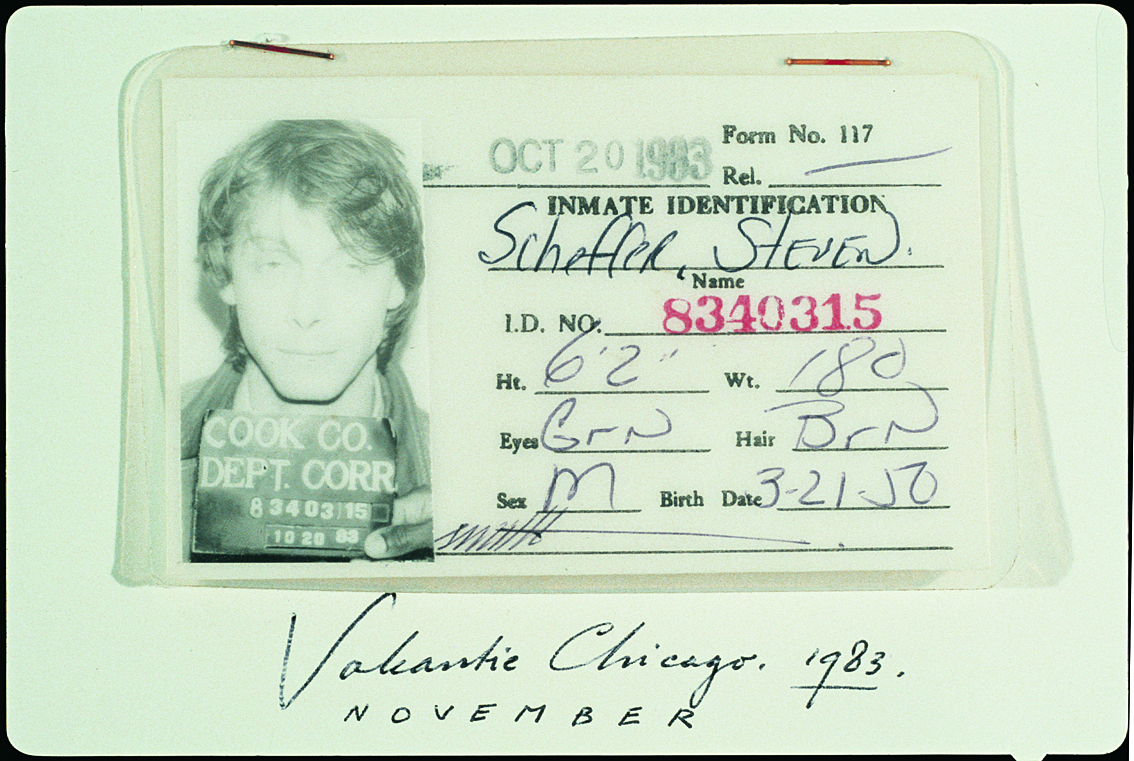 OCT 20 1983
Form No. 117
Rel.
INMATE IDENTIFICATION
Scheffer, Steven.
Name
I.D. NO. 8340315
Ht. 6'2" Wt. 180
Eyes Grn Hair Brn
Sex M Birth Date 3-21-50
COOK CO.
DEPT. CORR
8340315
10 20 83
Vakantie Chicago. 1983.
NOVEMBER